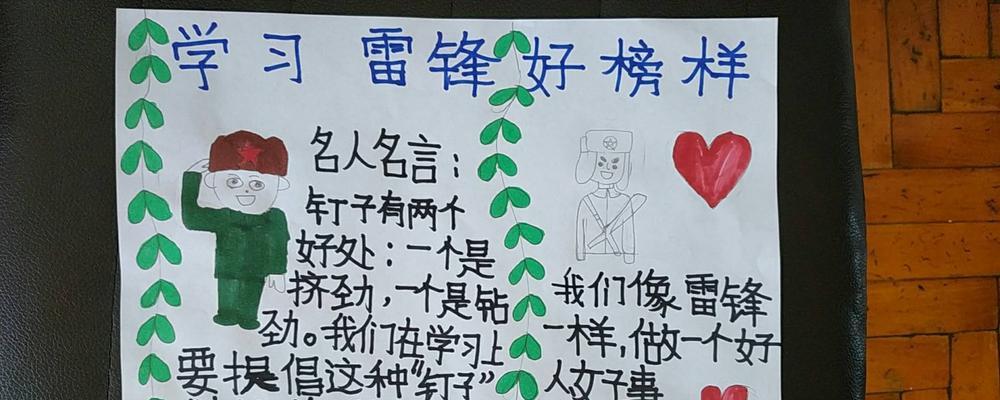 学习 雷锋好榜样
名人名言：
钉子有两个
好处：一个是
挤劲，一个是钻
劲。我们在学习上
要提倡这种“钉子”
我们像雷锋
一样，做一个好
人好事